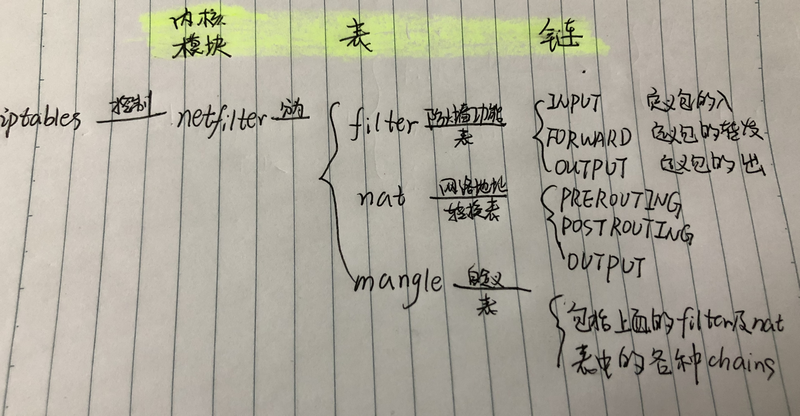 内核
模块 表 链
iptables 控制 netfilter 分为
filter 防火墙功能
表
INPUT 定义包的入
FORWARD 定义包的转发
OUTPUT 定义包的出
nat 网络地址
转换表
PREROUTING
POSTROUTING
OUTPUT
mangle 自定义
表
包括上面的filter及nat
表中的各种chains